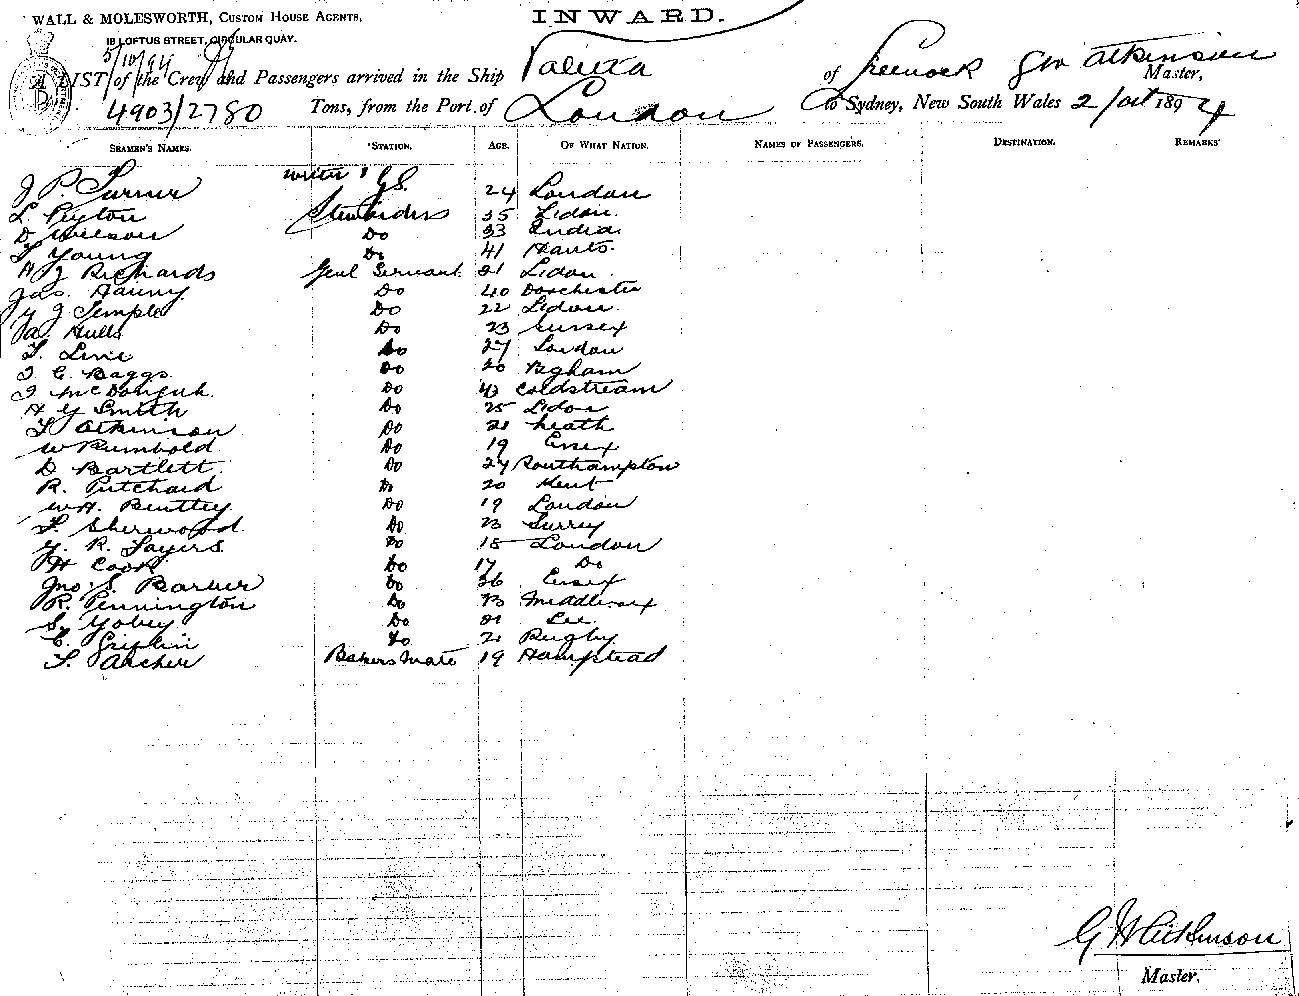 WALL & MOLESWORTH, CUSTOM HOUSE AGENTS,
INWARD.
18 LOFTUS STREET, CIRCULAR QUAY.
5/10/94
A LIST of the Crew and Passengers arrived in the Ship Valetta of Greenock GW Atkinson Master,
4903/2780 Tons, from the Port of London to Sydney, New South Wales 2/Oct 1894
SEAMEN'S NAMES. STATION. AGE. OF WHAT NATION. NAMES OF PASSENGERS. DESTINATION. REMARKS
J P. Turner writer & G.S. 24 London
L. Peyton Stewardess 35 Ldon.
D Wilson Do 33 India
T Young Do 41 Hants.
H J Richards Genl Servant 21 Ldon
Jas. Do 40 Dorchester
J Temple Do 22 Ldon
Hulls Do 23 Sussex
T. Line Do 27 London
J. E. Baggs Do 20
J McDonguh Do 43 Coldstream
H G Smith Do 25 Ldon
T Atkinson Do 21 Neath
W Rumbold Do 19 Essex
D Bartlett Do 24 Southampton
R. Pritchard Do 20 Kent
W H. Bentley Do 19 London
F. Sherwood Do 23 Surrey
R. Sayers Do 18 London
H Cook Do 17 Do
Jno S. Barber Do 36 Essex
R. Pennington Do 23 Middlesex
S. Yobey Do 21 Lee
E. Griplin Do 21 Rugby
T. Archer Bakers Mate 19 Hampstead
G W Atkinson
Master.